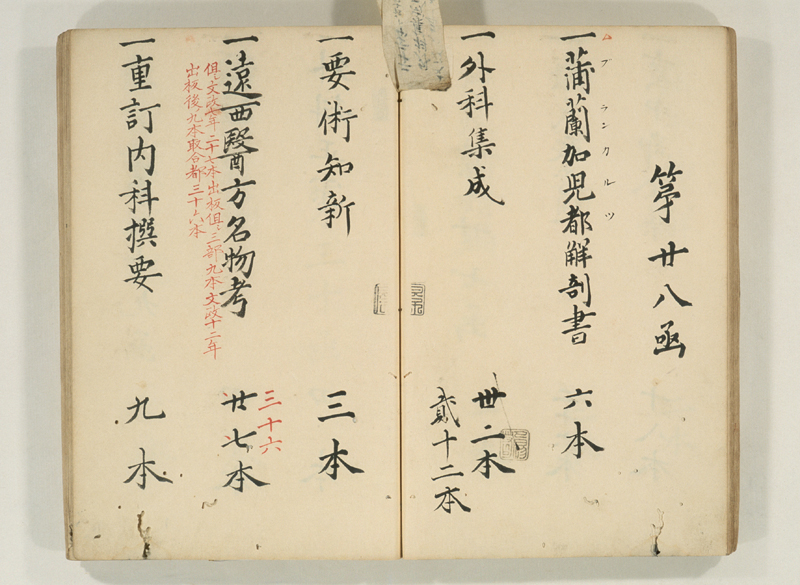 第廿八凾
一蒲蘭加児都解剖書 六本
ムブランカルツ
一外科集成 卅二本
貳十二本
一要術知新 三本
一遠西醫方名物考 廿七本
三十六
但文政年二十七本出板但三部九本文政十二年
出板後九本取合都三十六本
一重訂内科撰要 九本